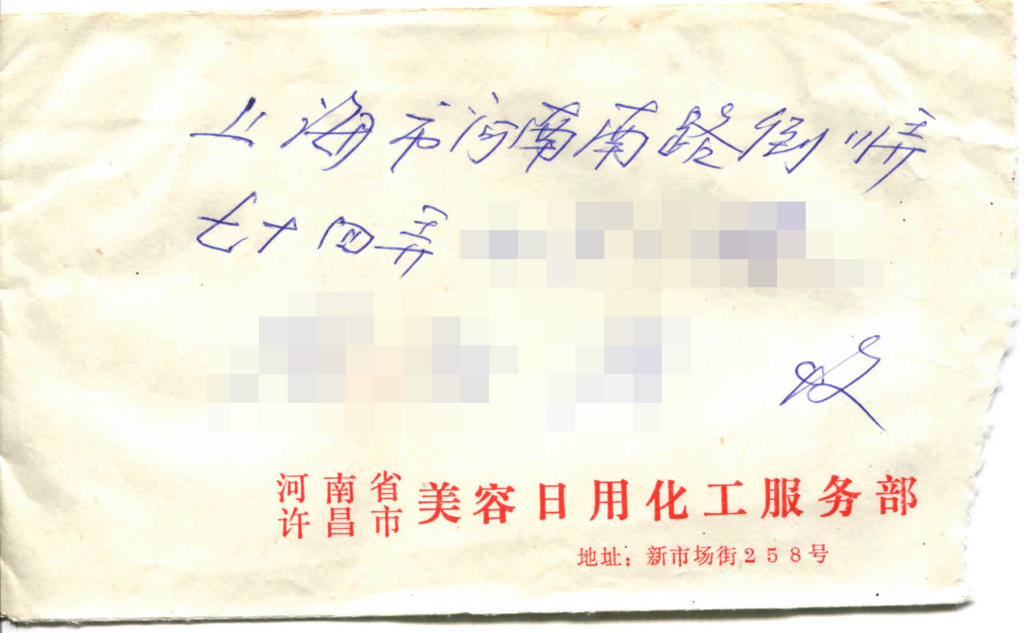 上海市河南南路倒川弄
七十四弄
收
河南省
许昌市 美容日用化工服务部
地址：新市场街258号